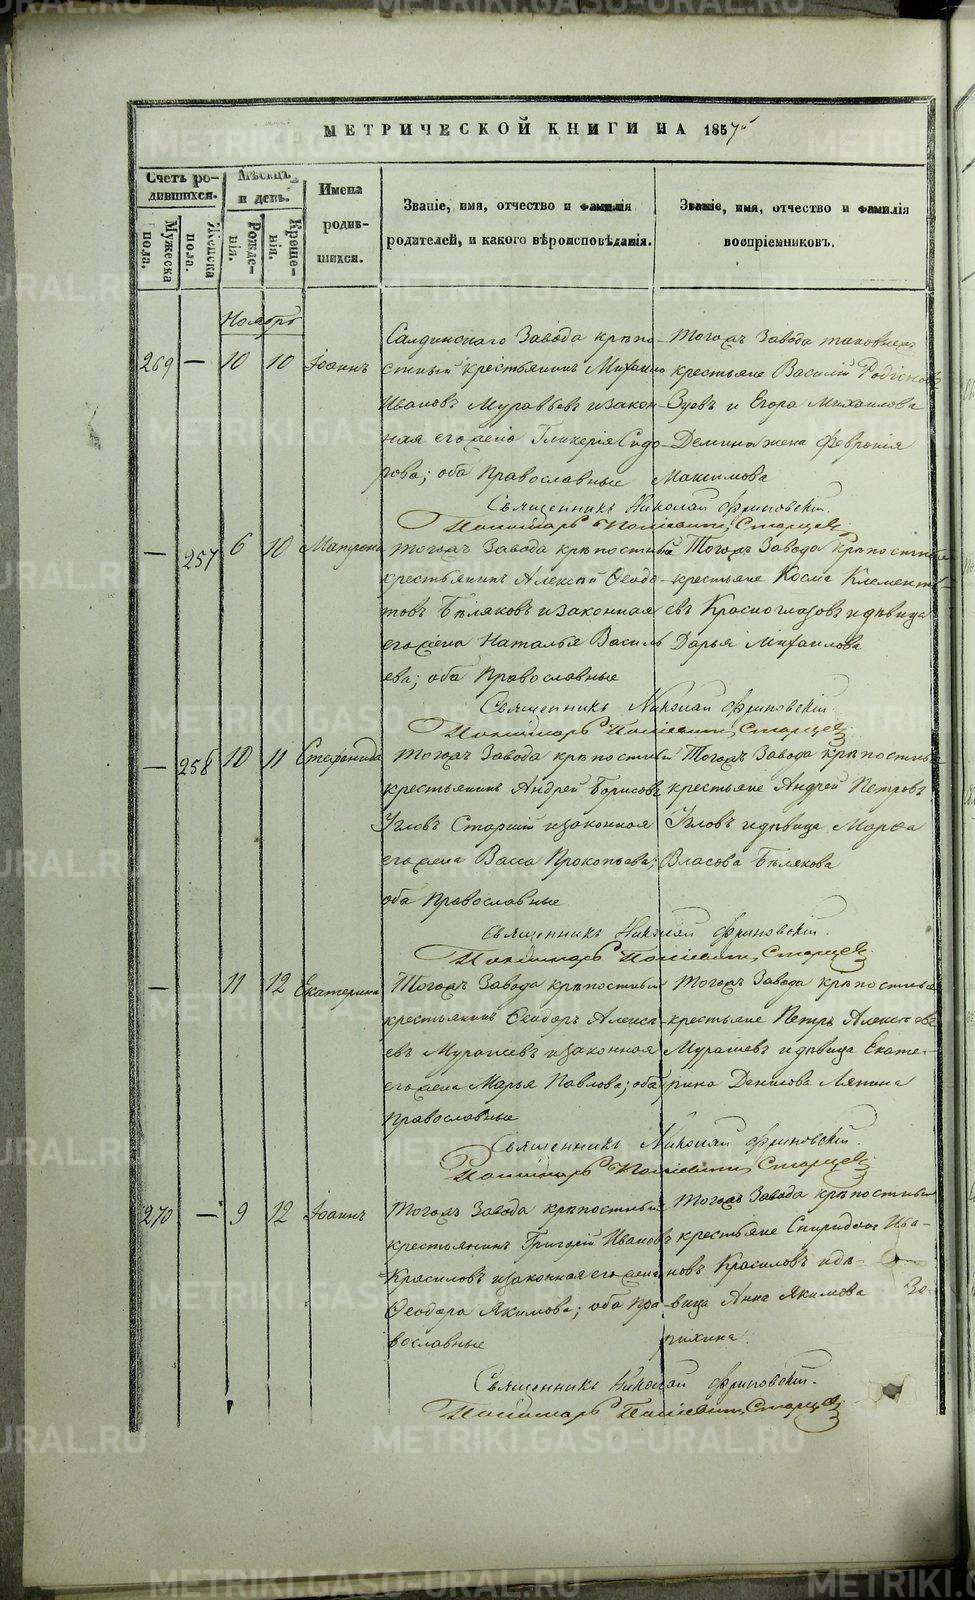 МЕТРИЧЕСКОЙ КНИГИ НА 1857й
Счетъ ро-
дившихся.
Мужеска
пола.
Женска
пола.
Мѣсяцъ
и день.
Рожде-
нія.
Креще-
нія.
Имена
родив-
шихся.
Званіе, имя, отчество и фамилія
родителей, и какого вѣроисповѣданія.
Званіе, имя, отчество и фамилія
воспріемниковъ.
Ноябрь
269 — 10 10 Іоаннъ
Салдинскаго Завода крѣпо-
стный крестьянинъ Михаило
Ивановъ Муравьевъ и закон-
ная его жена Гликерія Сидо-
рова; оба Православные
Тогожъ Завода таковыежъ
крестьяне Василій Родіоновъ
Зуевъ и Егора Михаилова
Демина жена Февронія
Максимова
Священникъ Николай Флиповскій.
Пономарь Старцевъ
— 257 6 10 Матрона
Тогожъ Завода крѣпостный
крестьянинъ Алексѣй Ѳедо-
товъ Бѣляковъ и законная
его жена Наталья Василь
ева; оба Православные
Тогожъ Завода Крѣпостные
крестьяне Косма Клементь
евъ Красноглазовъ и дѣвица
Дарья Михаилова
Священникъ Николай Флиповскій.
Пономарь Старцевъ
— 258 10 11 Стефанида
Тогожъ Завода крѣпостный
крестьянинъ Андрей Борисовъ
Угловъ Старшій и законная
его жена Васса Прокопьева;
оба Православные
Тогожъ Завода крѣпостные
крестьяне Андрей Петровъ
Угловъ и дѣвица Марѳа
Власова Бѣлякова
Священникъ Николай Флиповскій.
Пономарь Старцевъ
— 11 12 Екатерина
Тогожъ Завода крѣпостный
крестьянинъ Ѳеодоръ Алексѣ-
евъ Мурашевъ и законная
его жена Марья Павлова; оба
Православные
Тогожъ Завода крѣпостные
крестьяне Петръ Алексѣевъ
Мурашевъ и дѣвица Екате-
рина Денисова Ляпина
Священникъ Николай Флиповскій.
Пономарь Старцевъ
270 — 9 12 Іоаннъ
Тогожъ Завода крѣпостный
крестьянинъ Григорій Ивановъ
Красиловъ и законная его жена
Ѳеодора Якимова; оба пра-
вославные
Тогожъ Завода крѣпостные
крестьяне Спиридонъ Ива-
новъ Красиловъ и дѣ-
вица Анна Якимова Зо-
рихина.
Священникъ Николай Флиповскій.
Пономарь Старцевъ
METRIKI.GASO-URAL.RU